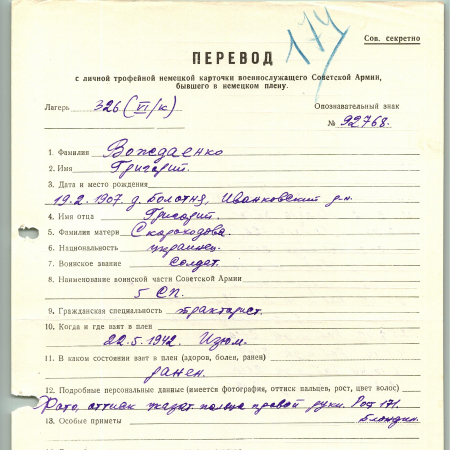 174
Сов. секретно
ПЕРЕВОД
с личной трофейной немецкой карточки военнослужащего Советской Армии,
бывшего в немецком плену.
Лагерь 326 (VI/K) Опознавательный знак
№ 92768.
1. Фамилия Вождаенко
2. Имя Григорий.
3. Дата и место рождения
19.2.1907. д. Болотня, Иванковский р-н.
4. Имя отца Григорий.
5. Фамилия матери Скороходова.
6. Национальность украинец.
7. Воинское звание солдат.
8. Наименование воинской части Советской Армии
5 СП.
9. Гражданская специальность тракторист.
10. Когда и где взят в плен
22.5.1942. Изюм.
11. В каком состоянии взят в плен (здоров, болен, ранен)
ранен.
12. Подробные персональные данные (имеется фотография, оттиск пальцев, рост, цвет волос)
Фото, оттиск указат. пальца правой руки. Рост 171.
13. Особые приметы блондин.